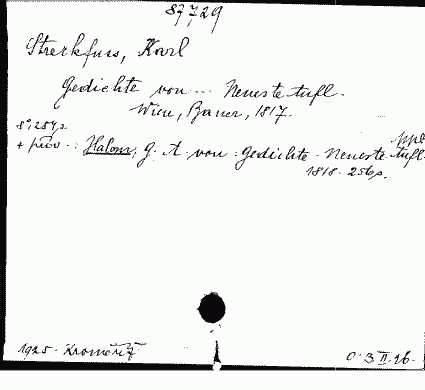 87,729
Streckfuss, Karl
Gedichte von ... Neueste Aufl.
Wien, Bauer, 1817.
8°, 284 p.
+ přív.: Halem, G. A. von: Gedichte. Neueste Aufl.
1816. 256 p.
1925. Kroměříž
0. 3. II. 26.